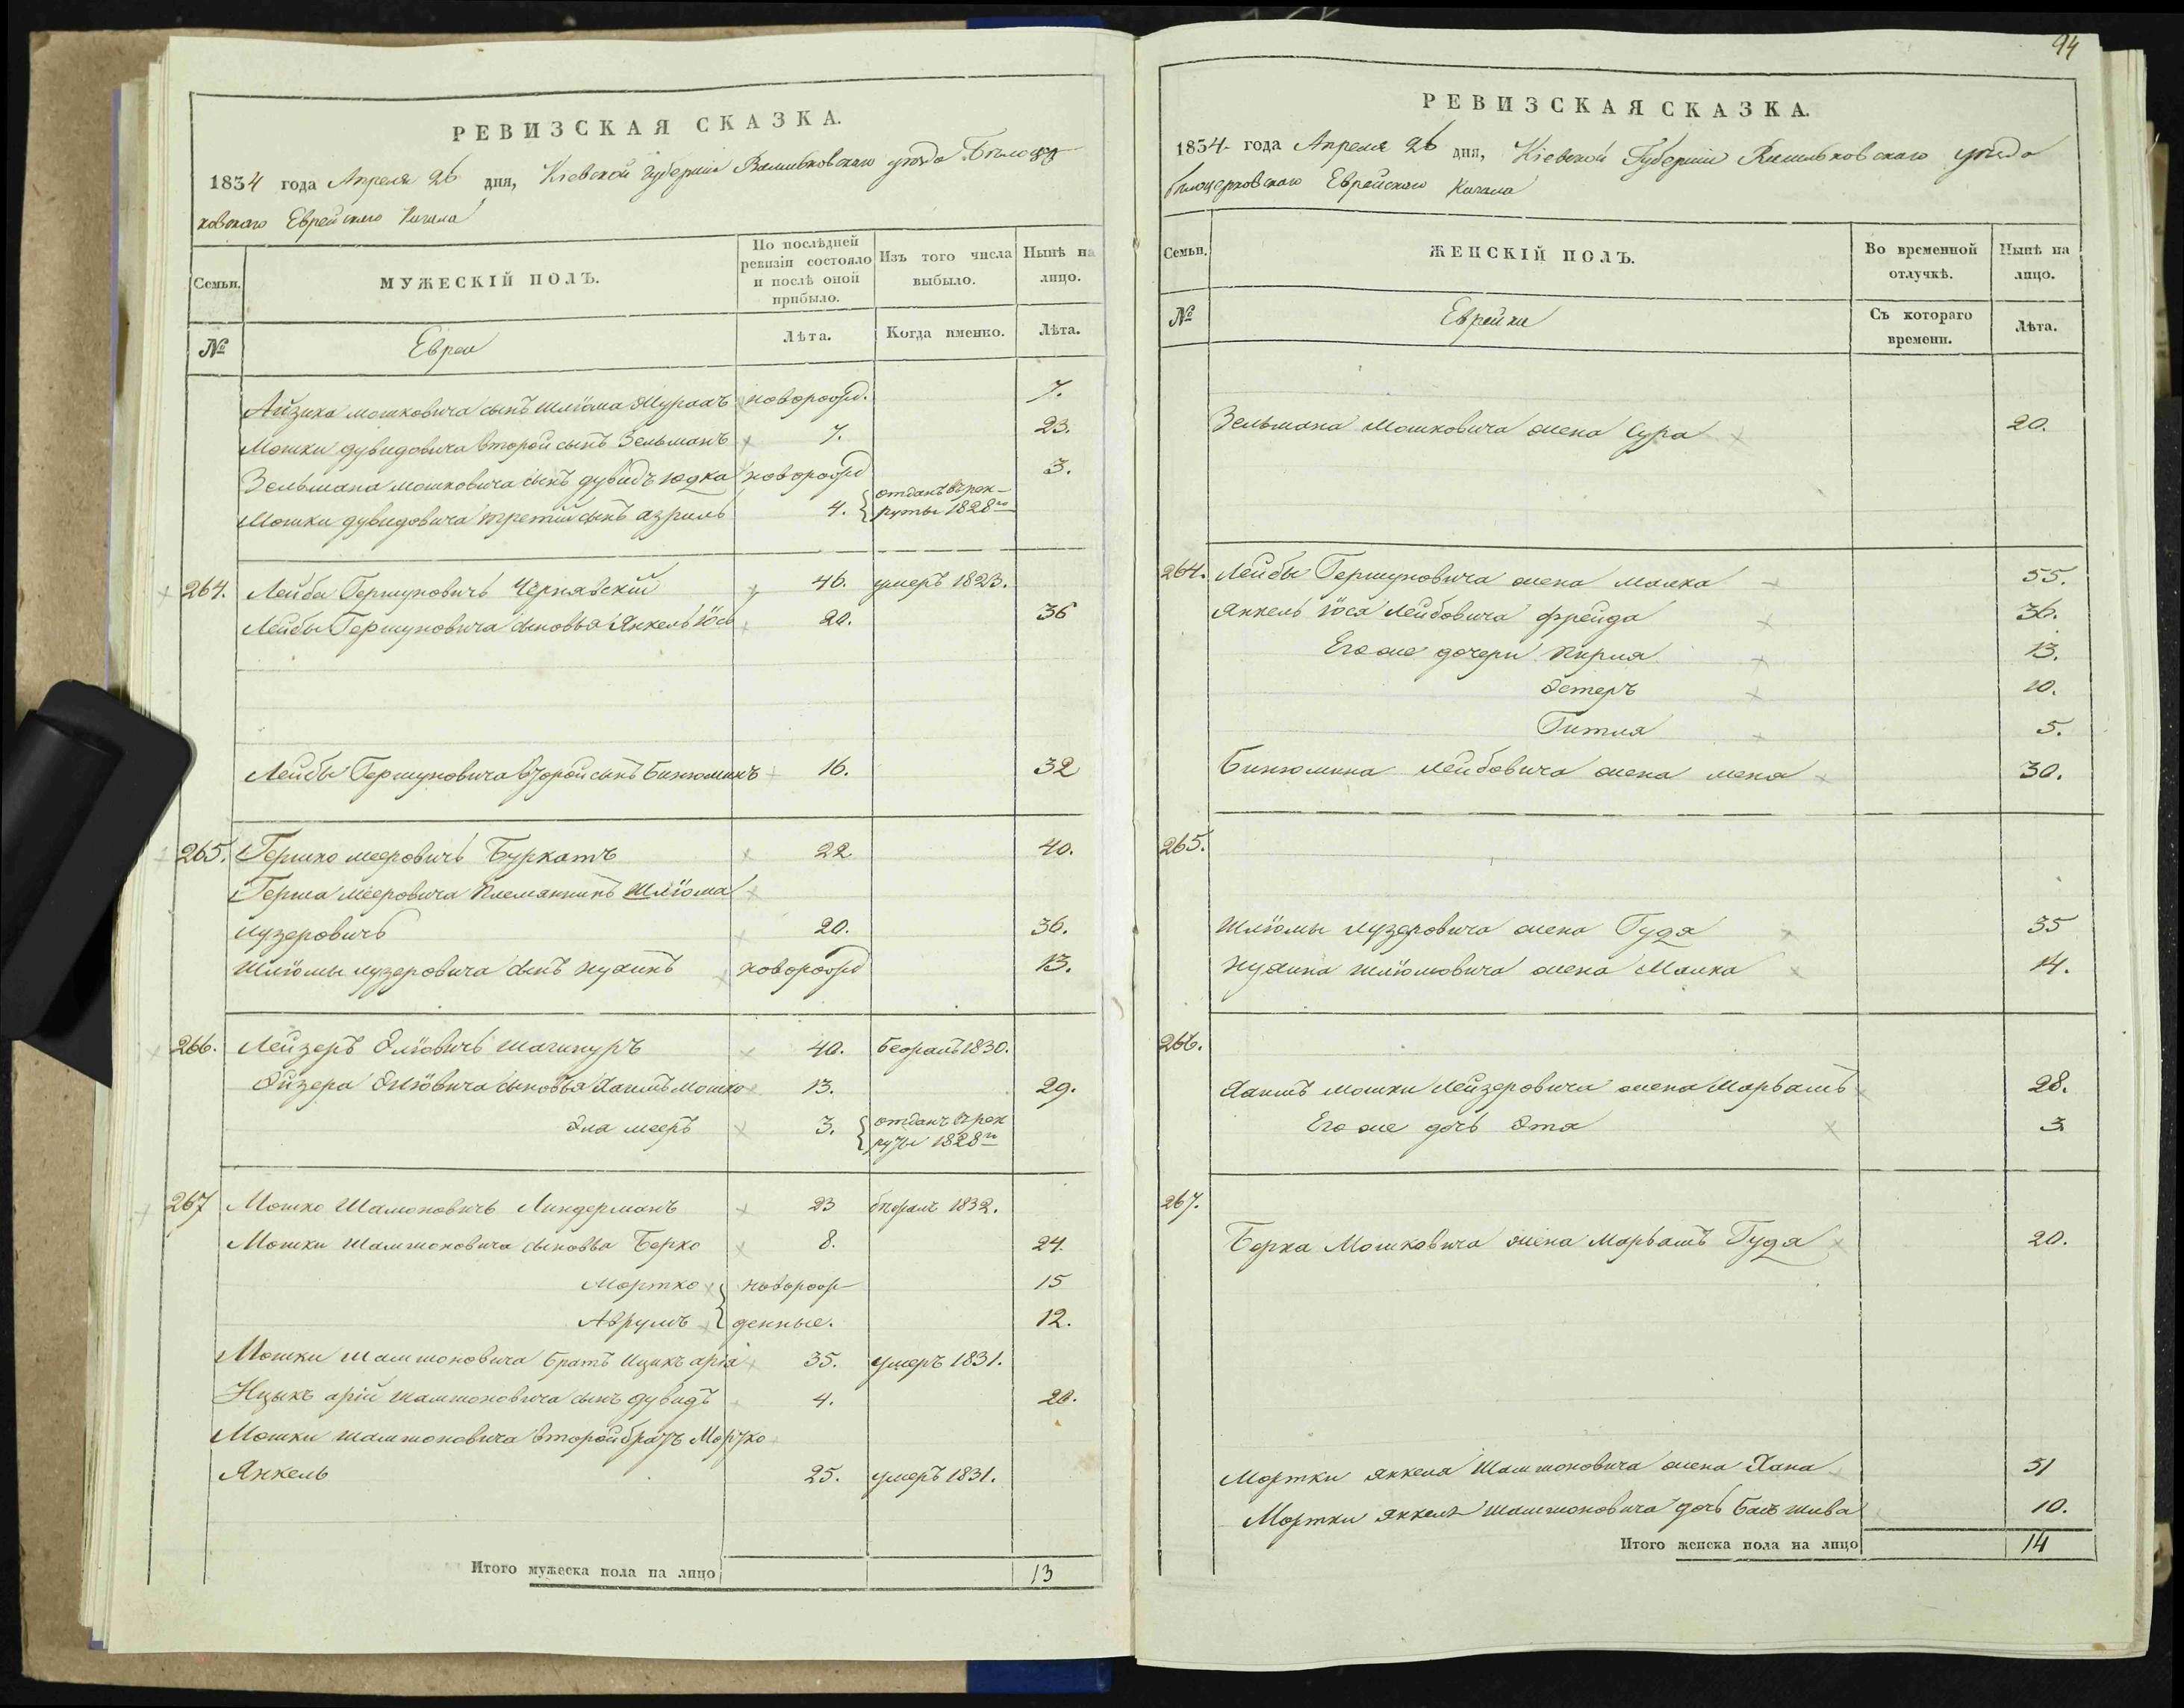 РЕВИЗСКАЯ СКАЗКА.
1834 года Апреля 26 дня, Кіевской Губерніи Васильковскаго уѣзда Бѣлоцер
ковскаго Еврейскаго Кагала
Семьи.
МУЖЕСКІЙ ПОЛЪ.
По послѣдней ревизіи состояло и послѣ оной прибыло.
Изъ того числа выбыло.
Нынѣ на лицо.
№
Евреи
Лѣта.
Когда именно.
Лѣта.
Айзика Мошковича сынъ Шліома новорожд. 7.
Мошки Дувидовича второй сынъ Зельманъ 7. 23.
Зельмана Мошковича сынъ Дувидъ Юдка новорожд 3.
Мошки Дувидовича третій сынъ Азриль 4. отданъ в рек-
руты 1828го
264. Лейба Гершуновичъ Чернявскій 46. умеръ 1823.
Лейбы Гершуновича сыновья Янкель Іось 20. 36
Лейбы Гершуновича второй сынъ Бинюминъ 16. 32
265. Гершко Меэровичъ Буркатъ 22 40.
Герша Меэровича племянникъ Шліома
Лузеровичъ 20. 36.
Шліомы Лузеровича сынъ Нухинъ новорожд 13.
266. Лейзеръ Эліовичъ 40. 1830.
Эліовича сыновья Хаимъ Мошко 13. 29.
Эла Меэръ 3. отданъ в рек
руты 1828го
267 Мошко Шамшоновичъ Линдерманъ 23 1832.
Мошки Шамшоновича сыновья Берко 8. 24.
Мортко новорож- 15
Аврумъ денные. 12.
Мошки Шамшоновича братъ Ицикъ Арія 35. умеръ 1831.
Ицыкъ Арій Шамшоновича сынъ Дувидъ 4. 20.
Мошки Шамшоновича второй братъ Мортко
Янкель 25. умеръ 1831.
Итого мужеска пола на лицо 13
94
РЕВИЗСКАЯ СКАЗКА.
1834 года Апреля 26 дня, Кіевской Губерніи Васильковскаго уѣзда
Бѣлоцерковскаго Еврейскаго Кагала
Семьи.
ЖЕНСКІЙ ПОЛЪ.
Во временной отлучкѣ.
Нынѣ на лицо.
№
Еврейки
Съ котораго времени.
Лѣта.
Зельмана Мошковича жена Сура 20.
264. Лейбы Гершуновича жена Малка 55.
Янкель Іося Лейбовича Фрейда 36.
Его же дочери Пирля 13.
Эстеръ 10.
Гитля 5.
Бинюмина Лейбовича жена Лена 30.
265.
Шліомы Лузеровича жена Гудя 35
Нухина Шліомовича жена Малка 14.
266.
Хаимъ Мошки Лейзеровича жена Марьямъ 28.
Его же дочь Эта 3
267.
Берка Мошковича жена Марьямъ Гудя 20.
Мортки Янкеля Шамшоновича жена Хана 31
Мортки Янкеля Шамшоновича дочь Бась Шива 10.
Итого женска пола на лицо 14